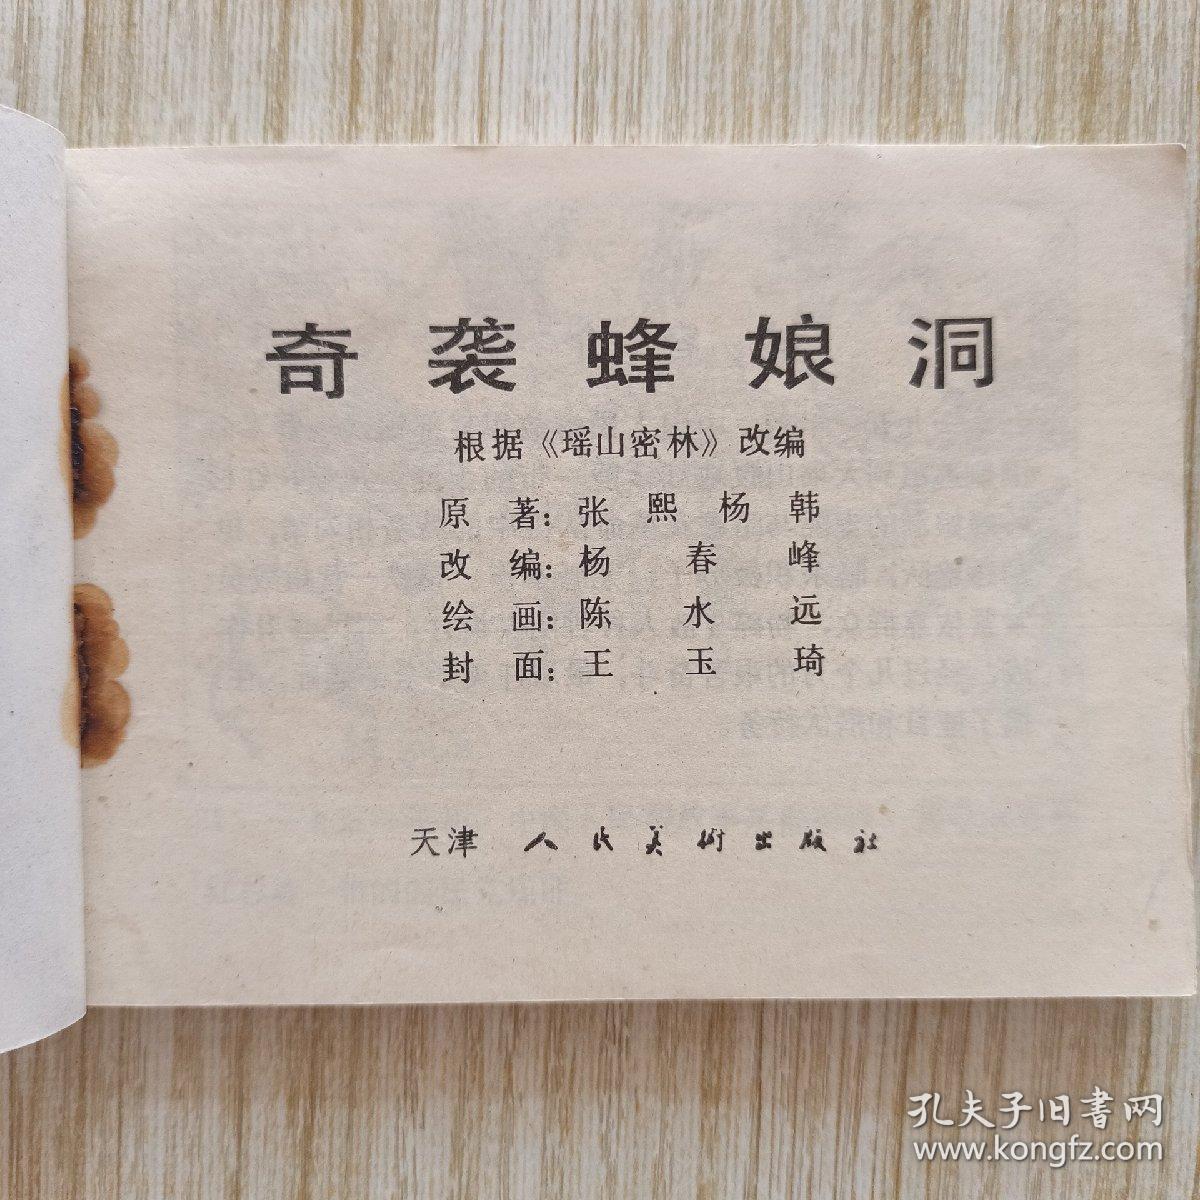 奇袭蜂娘洞
根据《瑶山密林》改编
原著：张熙杨韩
改编：杨春峰
绘画：陈水远
封面：王玉琦
天津人民美術出版社
孔夫子旧書网
www.kongfz.com